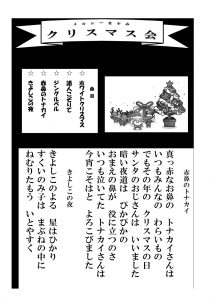 クリスマス会
曲目
☆ホワイトクリスマス
☆諸人こぞりて
☆ジングルベル
☆赤鼻のトナカイ
☆きよしこの夜
赤鼻のトナカイ
真っ赤なお鼻の トナカイさんは
いつもみんなの わらいもの
でもその年の クリスマスの日
サンタのおじさんは いいました
暗い夜道は ぴかぴかの
おまえの鼻が 役に立つのさ
いつも泣いてた トナカイさんは
今宵こそはと よろこびました
きよしこの夜
きよしこのよる 星はひかり
すくいのみ子は まぶねの中に
ねむりたもう いとやすく